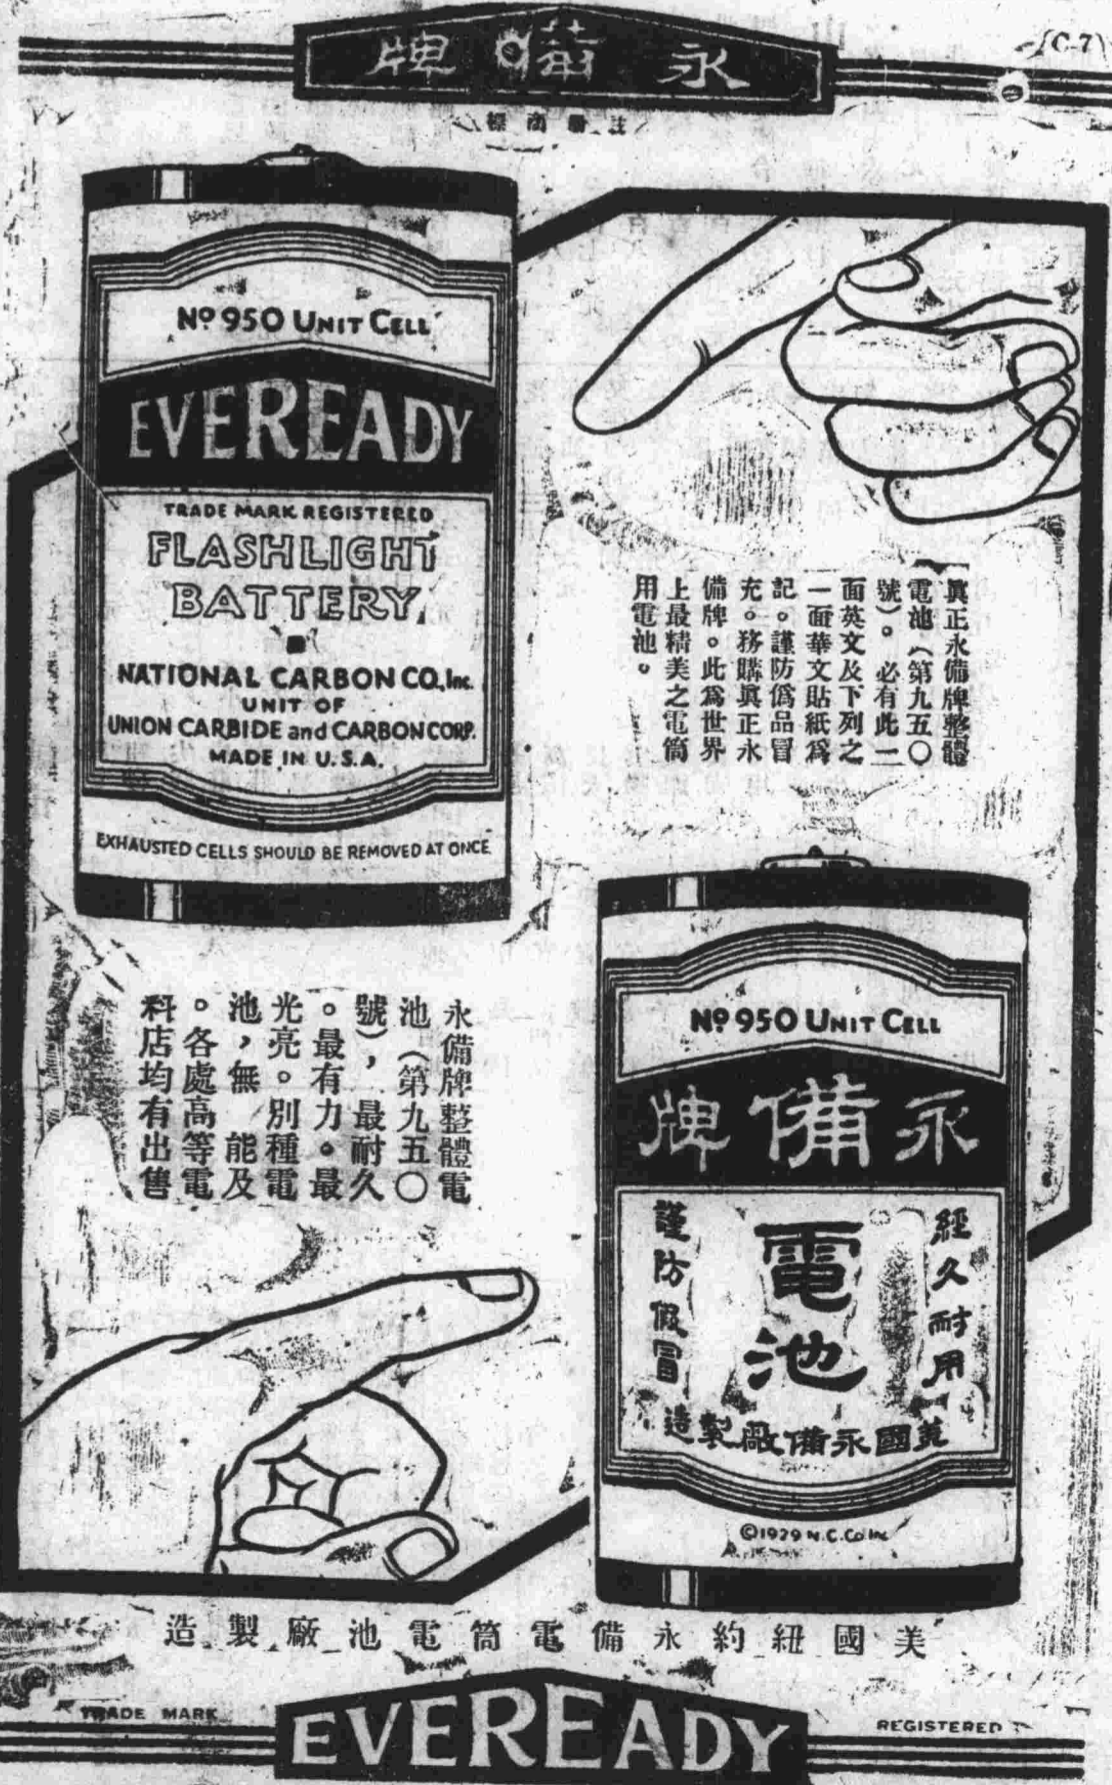 永備牌
(C-7)
註冊商標
Nº 950 UNIT CELL
EVEREADY
TRADE MARK REGISTERED
FLASHLIGHT
BATTERY
NATIONAL CARBON CO., Inc.
UNIT OF
UNION CARBIDE and CARBON CORP.
MADE IN U.S.A.
EXHAUSTED CELLS SHOULD BE REMOVED AT ONCE
眞正永備牌整體
電池（第九五〇
號）。必有此二
面英文及下列之
一面華文貼紙爲
記。謹防僞品冒
充。務購眞正永
備牌。此爲世界
上最精美之電筒
用電池。
永備牌整體電
池（第九五〇
號），最耐久
。最有力。最
光亮。別種電
池，無能及
。各處高等電
料店均有出售
Nº 950 UNIT CELL
永備牌
經久耐用
電池
謹防假冒
美國永備廠製造
©1929 N.C.Co Inc
美國紐約永備電筒電池廠製造
TRADE MARK
EVEREADY
REGISTERED